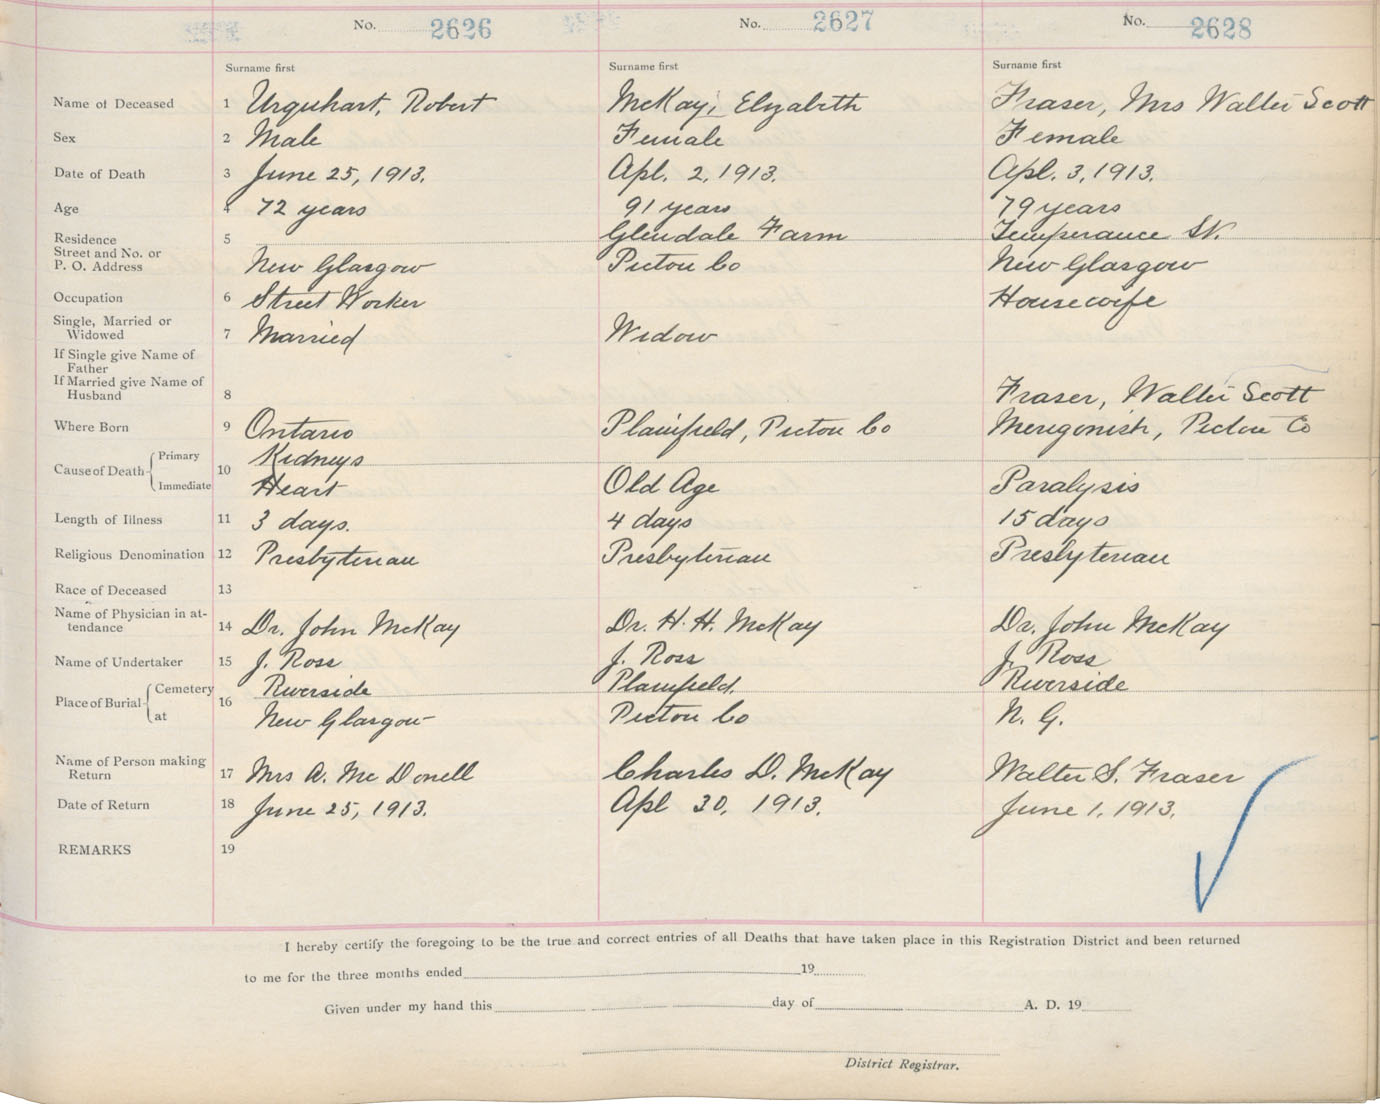 No. 2626 No. 2627 No. 2628
Surname first Surname first Surname first
Name of Deceased 1 Urquhart, Robert McKay, Elizabeth Fraser, Mrs Walter Scott
Sex 2 Male Female Female
Date of Death 3 June 25, 1913. Apl. 2, 1913. Apl. 3, 1913.
Age 4 72 years 91 years 79 years
Residence 5 Glendale Farm Temperance St.
Street and No. or
P. O. Address New Glasgow Pictou Co New Glasgow
Occupation 6 Street Worker Housewife
Single, Married or
Widowed 7 Married Widow
If Single give Name of
Father
If Married give Name of
Husband 8 Fraser, Walter Scott
Where Born 9 Ontario Plainfield, Pictou Co Merigonish, Pictou Co
Cause of Death Primary 10 Kidneys
Immediate Heart Old Age Paralysis
Length of Illness 11 3 days. 4 days 15 days
Religious Denomination 12 Presbyterian Presbyterian Presbyterian
Race of Deceased 13
Name of Physician in at-
tendance 14 Dr. John McKay Dr. H. H. McKay Dr. John McKay
Name of Undertaker 15 J. Ross J. Ross J. Ross
Place of Burial Cemetery 16 Riverside Plainfield. Riverside
at New Glasgow Pictou Co N. G.
Name of Person making
Return 17 Mrs A. McDonell Charles D. McKay Walter S. Fraser
Date of Return 18 June 25, 1913. Apl 30, 1913. June 1, 1913.
REMARKS 19
I hereby certify the foregoing to be the true and correct entries of all Deaths that have taken place in this Registration District and been returned
to me for the three months ended 19
Given under my hand this day of A. D. 19
District Registrar.